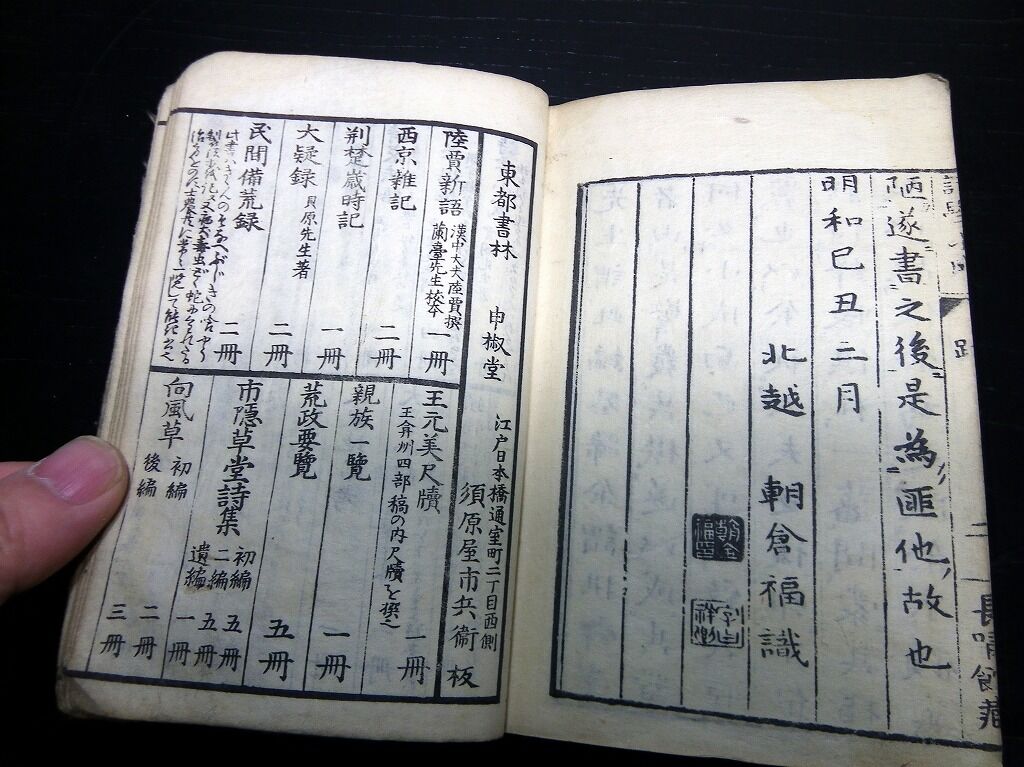 陋遂書之後是為匪他故也
明和己丑二月
北越 朝倉福識
東都書林 申椒堂
江戸日本橋通室町二丁目西側
須原屋市兵衛板
陸賈新語 漢中大夫陸賈撰 蘭臺先生校本 一冊
西京雜記 二冊
荆楚歳時記 一冊
大疑録 貝原先生著 二冊
民間備荒録 二冊
王元美尺牘 王弇州四部稿の内尺牘を撰 一冊
親族一覽 一冊
荒政要覽 五冊
市隱草堂詩集 初編 五冊
二編 五冊
遺編 一冊
向風草 初編 二冊
後編 三冊